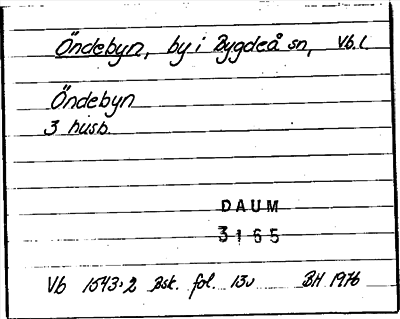 Öndebyn, by i Bygdeå sn, Vb.l.
Öndebyn
3 husb.
DAUM
3165
Vb 1543:2 Bsk. fol. 13v BH 1976